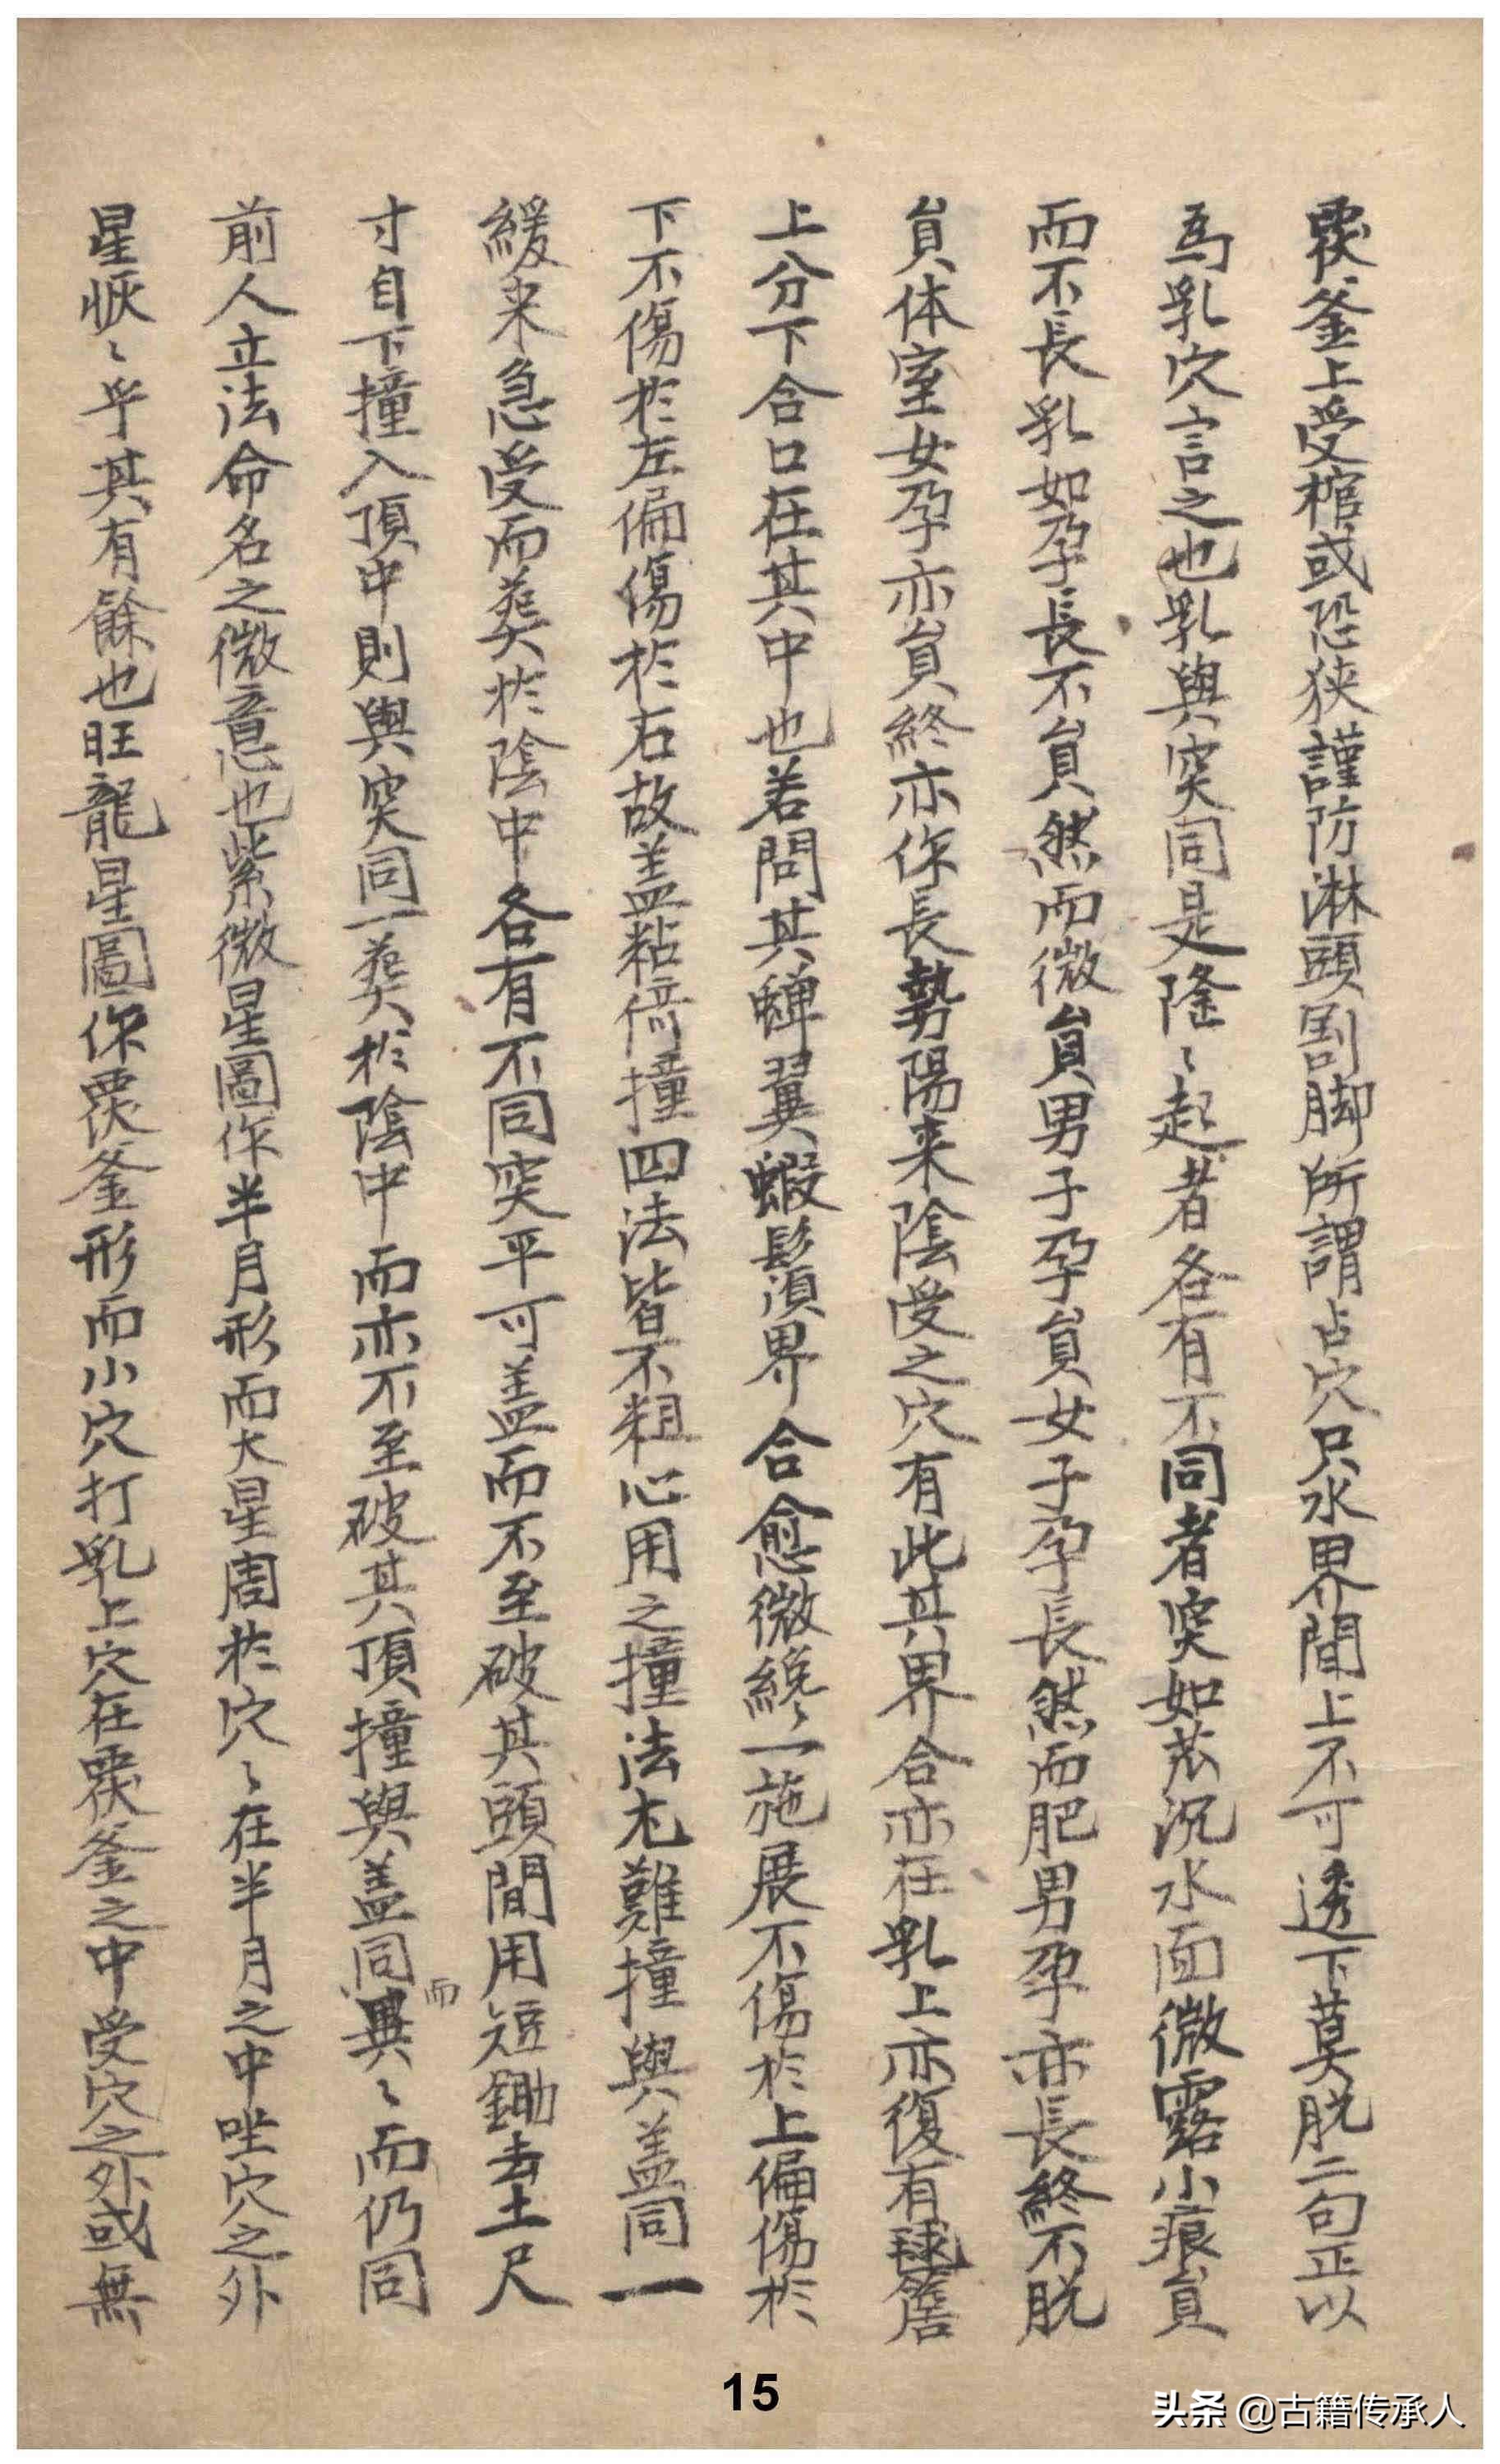 覆釜上受棺或恐狭謹防淋頭割脚所謂占穴只水界間上不可透下莫脱二句正以
為乳穴言之也乳與突同是隆〻起者各有不同者突如芯沉水面微露小痕貟
而不長乳如孕長不貟然而微貟男子孕貟女子孕長然而肥男孕亦長終不脱
貟体室女孕亦貟終亦作長勢陽来陰受之穴有此其界合亦在乳上亦復有毬簷
上分下合口在其中也若問其蟬翼蝦鬚湏界合愈微纔〻一施展不傷於上偏傷於
下不傷於左偏傷於右故盖粘倚撞四法皆不粗心用之撞法尤難撞與盖同一
緩来急受而葬於陰中各有不同突平可盖而不至破其頭間用短鋤去土尺
寸自下撞入頂中則與突同一葬於陰中而亦不至破其頂撞與盖同而異〻而仍同
前人立法命名之微意也紫微星圖作半月形而大星周於穴〻在半月之中坐穴之外
星恢〻乎其有餘也旺龍星圖作覆釜形而小穴打乳上穴在覆釜之中受穴之外或無
15
头条 @古籍传承人